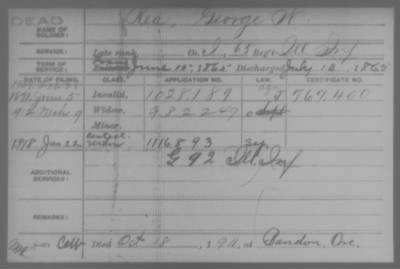 DEAD
Rea, George W.
NAME OF SOLDIER:
SERVICE: Late rank, Co. I, 63 Reg't Ill. Inf
TERM OF SERVICE: Enlisted June 10, 1865 Discharged July 12, 1865
DATE OF FILING. CLASS. APPLICATION NO. LAW. CERTIFICATE NO.
1891 June 5 Invalid, 1028189 J 767,400
Widow, 982247
Minor,
1918 Jan 22 Contest. Widow 1116893
G 92 Ill. Inf
ADDITIONAL SERVICES:
REMARKS:
Died Oct 18, 1911, at Bandon, Ore.